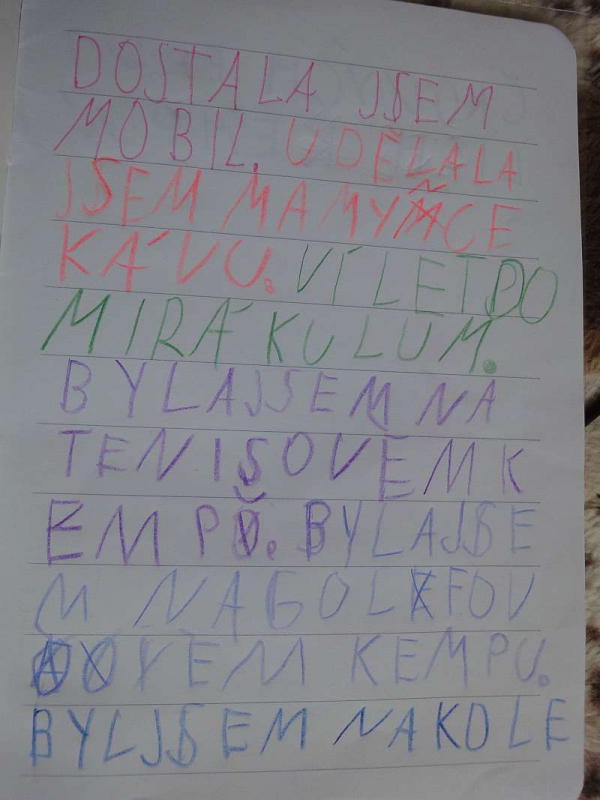 DOSTALA JSEM
MOBIL. UDĚLALA
JSEM MAMYŇCE
KÁVU. VÍLET DO
MIRÁKULUM.
BYLAJSEM NA
TENISOVEM K
EMPŮ. BYLAJSE
M NAGOLFOV
YEM KEMPU.
BYLJSEM NAKOLE